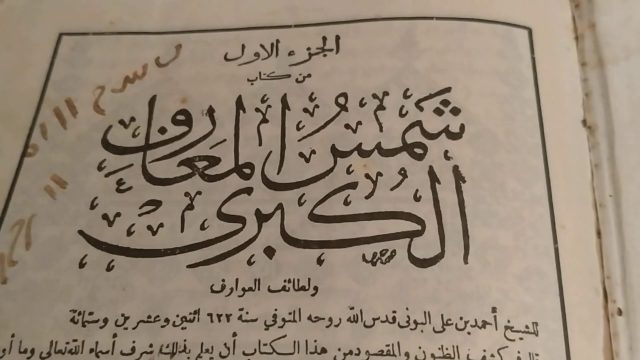 الجزء الاول
من كتاب
شمس المعارف
الكبرى
ولطائف العوارف
للشيخ أحمد بن على البونى قدس الله روحه المتوفي سنة ٦٢٢ اثنين وعشرين وستمائة
الظنون والمقصود من هذا الكتاب أن يعلم بذلك شرف أسماء الله تعالى وما